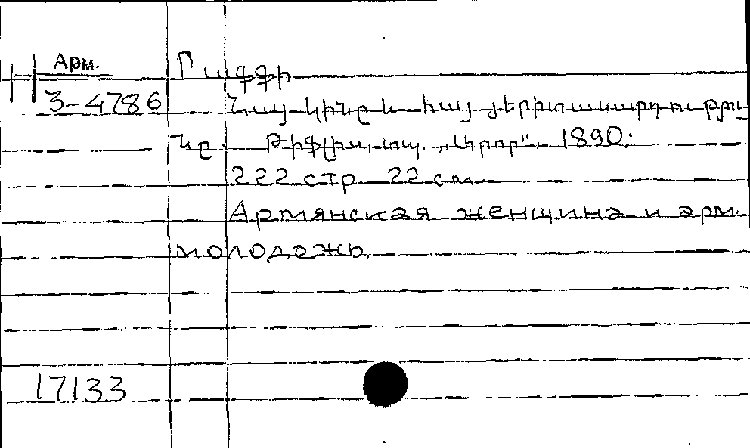 Арм.
Րաֆֆի
3-4786
Հայ կինը և հայ յերիտասարդու թիւ
նը. Թիֆլիս, տպ. „Արոր". 1890.
222 стр 22 см
Армянская женщина и арм.
молодожь
17133